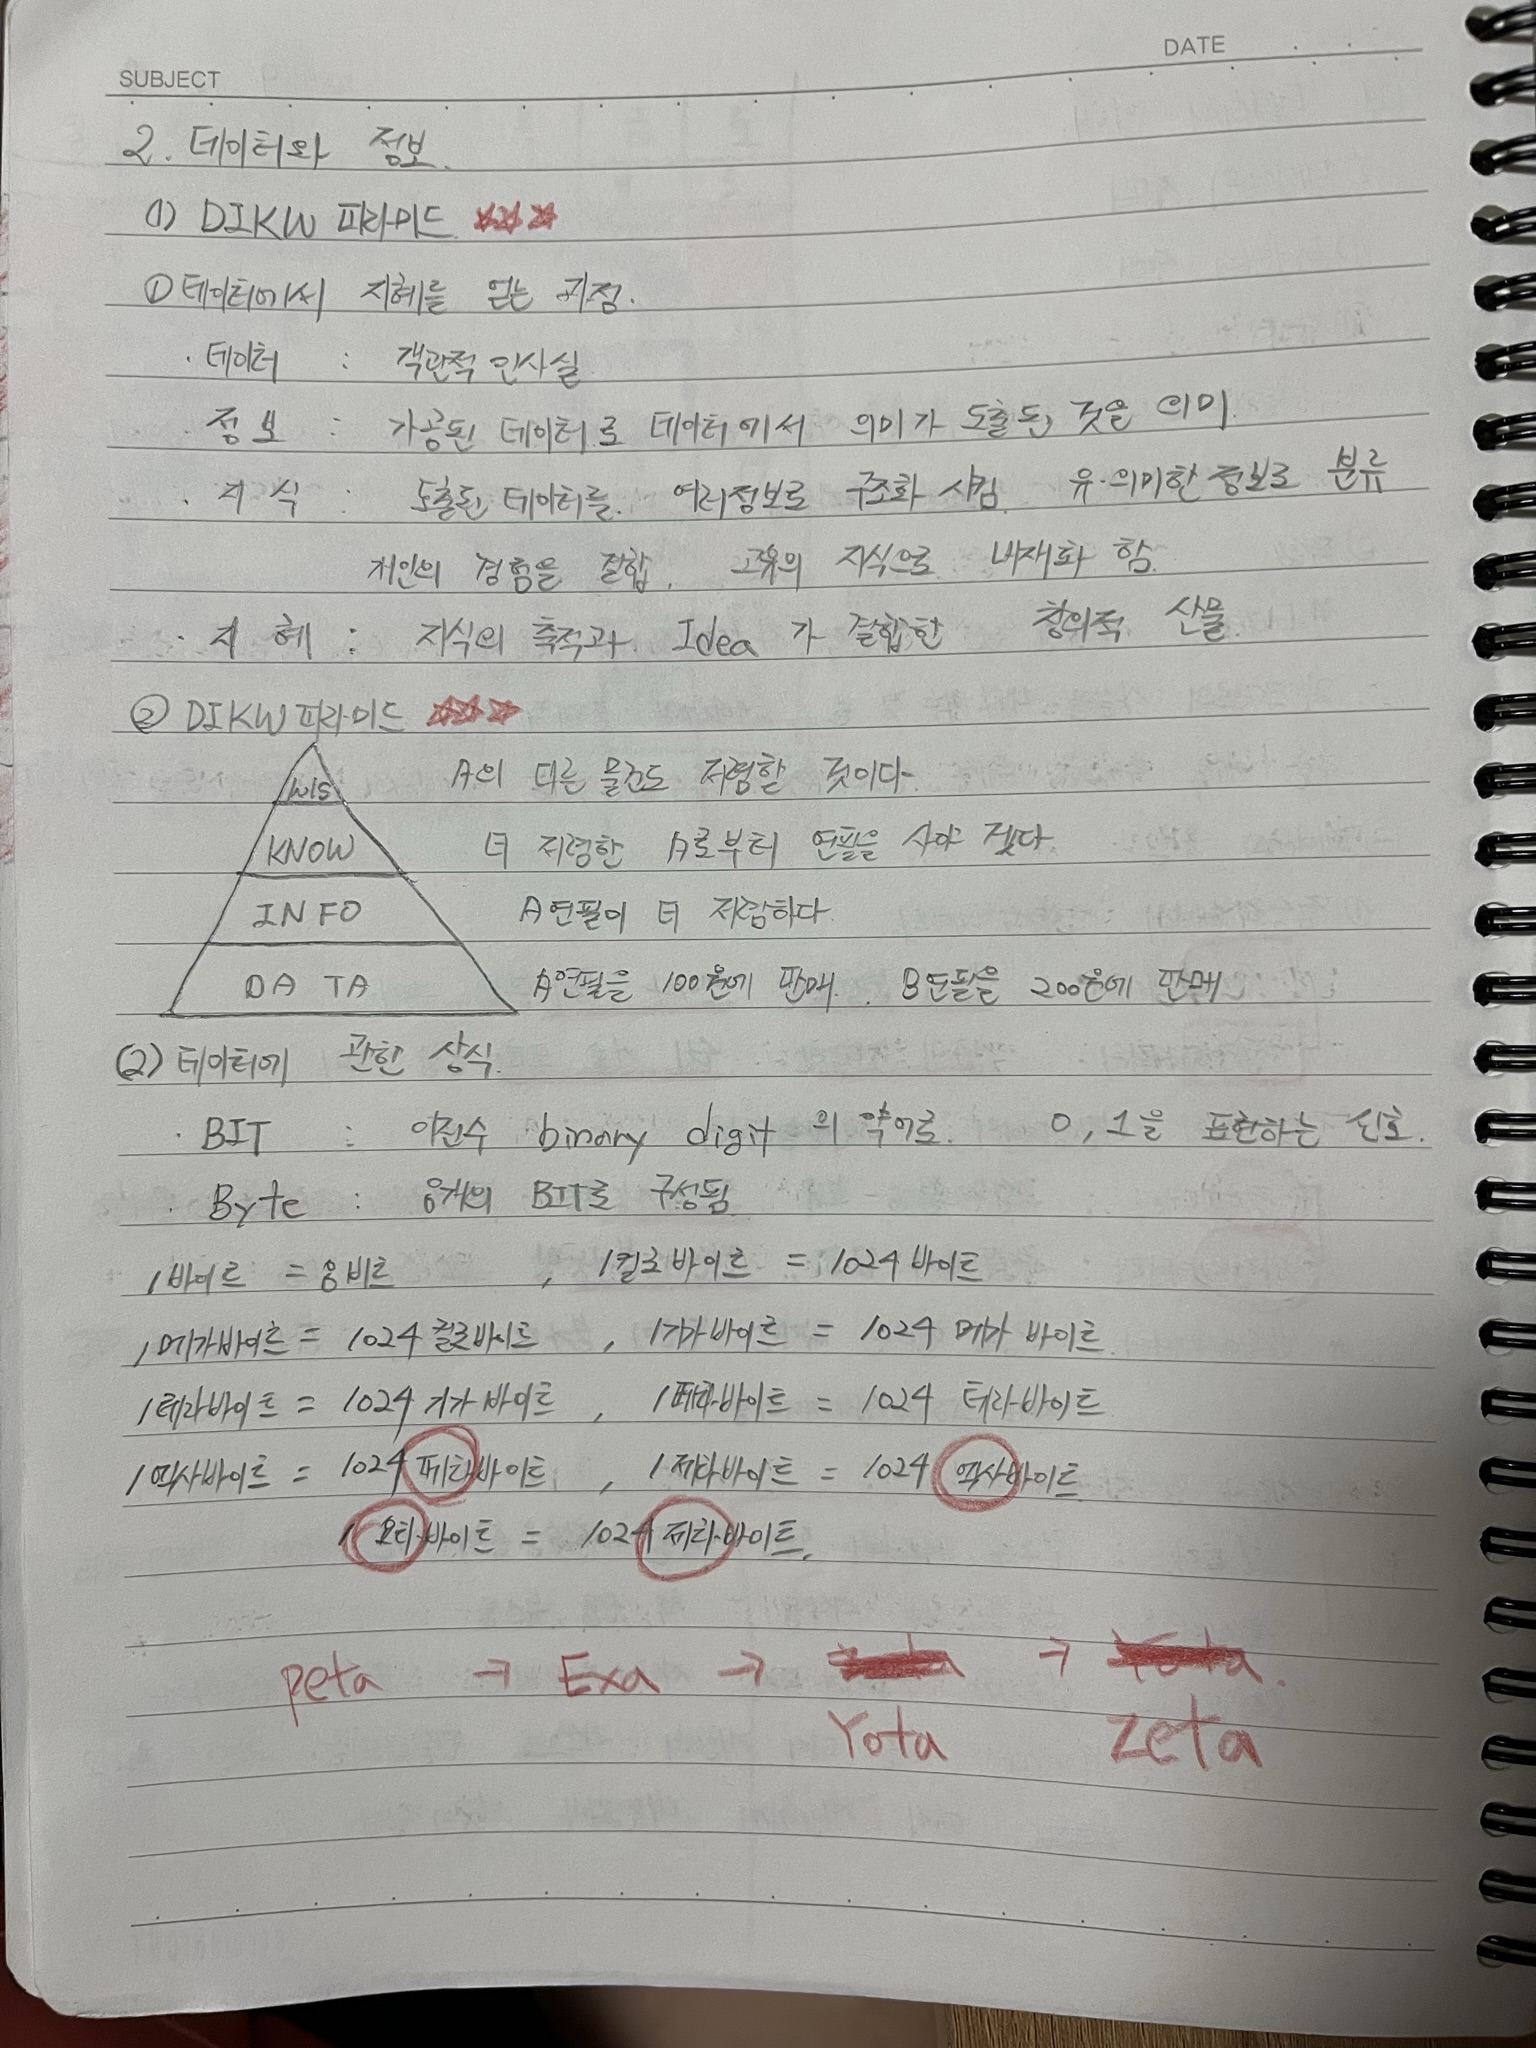 DATE
SUBJECT
2. 데이터와 정보.
(1) DIKW 피라미드 ☆☆☆
① 데이터에서 지혜를 얻는 과정.
· 데이터 : 객관적인 사실
· 정보 : 가공된 데이터로 데이터에서 의미가 도출된 것을 의미.
· 지식 : 도출된 데이터를 여러정보로 구조화 시킴 유의미한 정보로 분류
개인의 경험을 결합, 고유의 지식으로 내재화 함.
· 지혜 : 지식의 축적과 Idea가 결합한 창의적 산물
② DIKW 피라미드 ☆☆☆
WIS A의 다른 물건도 저렴할 것이다.
KNOW 더 저렴한 A로부터 연필을 사야 겠다
INFO A연필이 더 저렴하다.
DATA A연필을 100원에 판매, B연필을 200원에 판매
(2) 데이터에 관한 상식.
· BIT : 이진수 binary digit 의 약어로 0, 1을 표현하는 신호.
· Byte : 8개의 BIT로 구성됨
1바이트 = 8비트 , 1킬로바이트 = 1024바이트
1메가바이트 = 1024킬로바이트 , 1기가바이트 = 1024 메가 바이트
1테라바이트 = 1024 기가 바이트 , 1페타바이트 = 1024 테라바이트
1엑사바이트 = 1024 페타바이트 , 1제타바이트 = 1024 엑사바이트
1 요타바이트 = 1024 제타바이트.
peta → Exa → →
Yota zeta